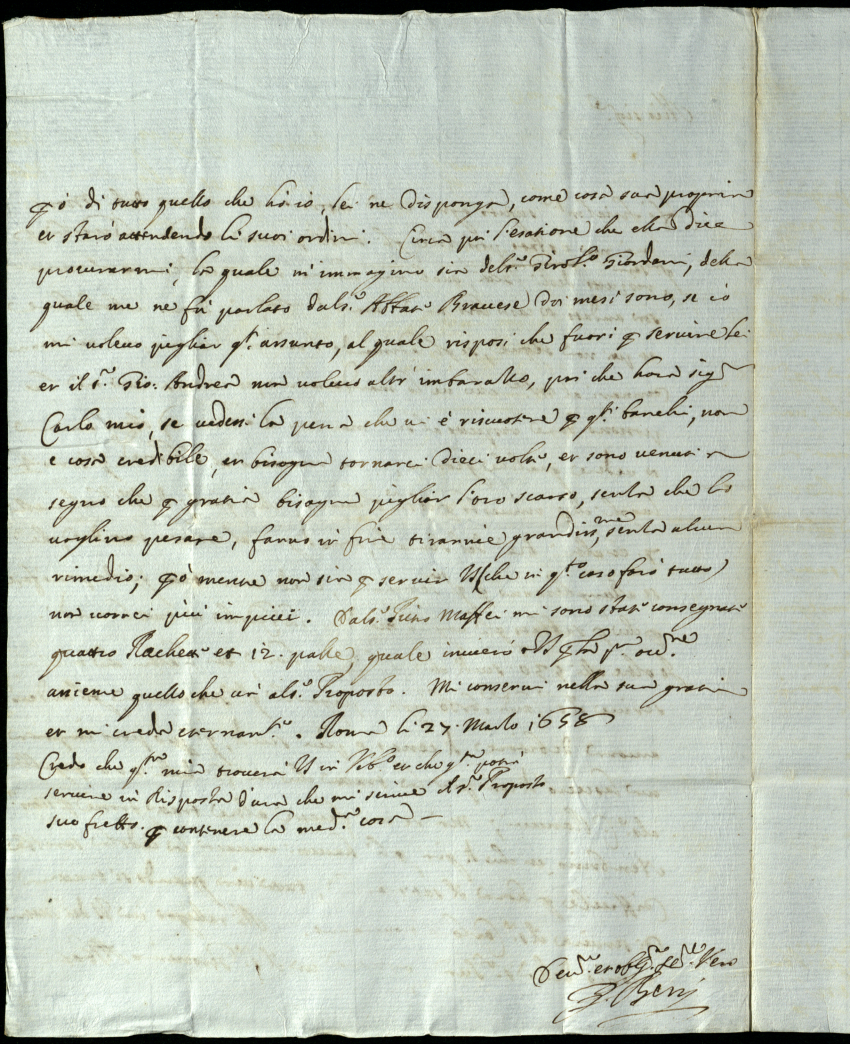 p̱ò di tutto quello che hò io, lei ne disponga, come cosa sua propria
et starò attendendo li suoi ordini. Circa poi l'esatione che ella dice
procurarmi, la quale m'immagino sia del s.r Girol.o Giordani, della
quale me ne fù parlato dal s.r Abbate Bravese doi mesi sono, se io
mi volevo pigliar q.to assunto, al quale risposi che fuori p̱ servire lei
et il s.r Gio: Andrea non volevo altr'imbarazzo, poi che hora sig.r
Carlo mio, se vedessi la pena che vi è riscuotere p̱ q.ti banchi, non
è cosa credibile, et bisogna tornarci dieci volte, et sono venuti a
segno che p̱ gratia bisogna pigliar l'oro scarso, senza che lo
voglino pesare, fanno in fine tirannie grandiss.me senza alcun
rimedio; p̱ò mentre non sia p̱ servir VS (che in q.to caso farò tutto)
non vorrei più impicci. Dal s.r Maffei mi sono stati consegnati
quattro Rachette et 12. palle, quale invierò a VS p̱ la p.a occ.ne
assieme quello che al s.r Proposto. Mi conservi nella sua gratia
et mi creda eternam.te. Roma li 27. Marzo 1658
Credo che q.sta mia troverà VS in et che q.sta potrà
servire in Risposta d'una che mi scrive il s.r Proposto
suo fr̃ello. p̱ contenere la med.ma cosa —
Dev.mo et obl.mo se.re Vero